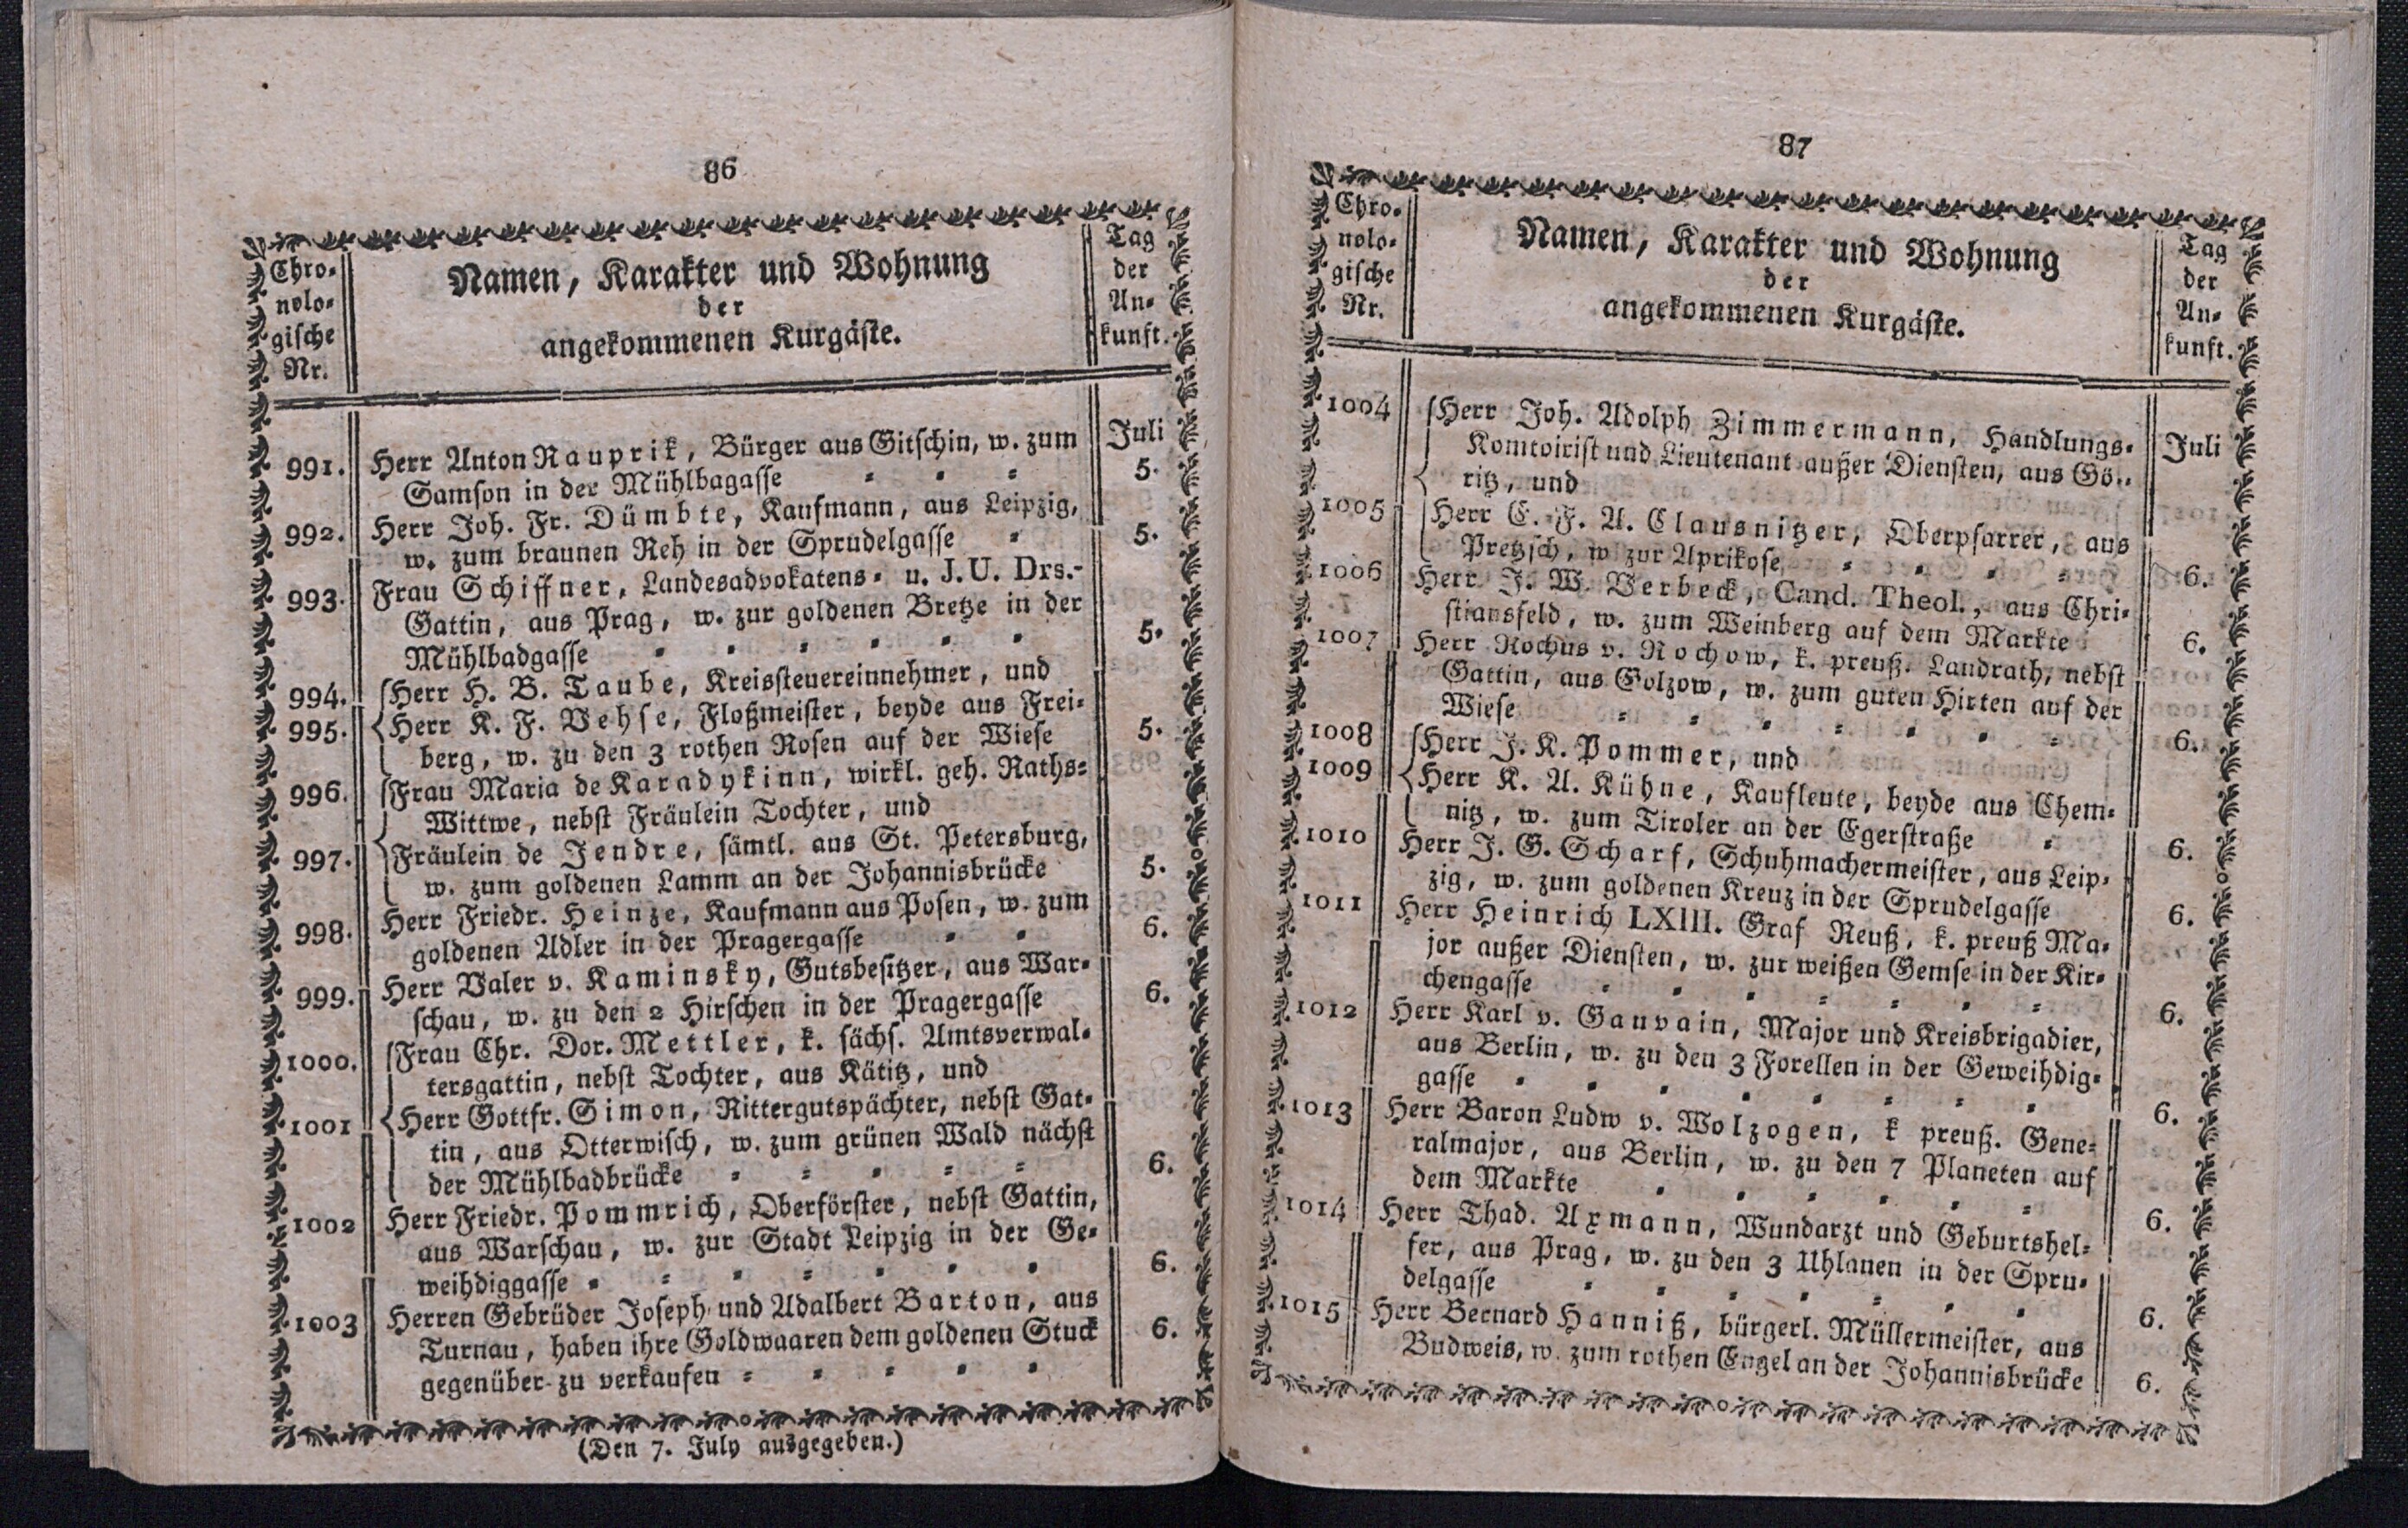 86
Chro-
nolo-
gische
Nr.
Namen, Karakter und Wohnung
der
angekommenen Kurgäste.
Tag
der
An-
kunft.
Juli
991. Herr Anton Rauprik, Bürger aus Gitschin, w. zum
Samson in der Mühlbagasse 5.
992. Herr Joh. Fr. Dümbte, Kaufmann, aus Leipzig,
w. zum braunen Reh in der Sprudelgasse 5.
993. Frau Schiffner, Landesadvokatens- u. J. U. Drs.-
Gattin, aus Prag, w. zur goldenen Bretze in der
Mühlbadgasse 5.
994. Herr H. B. Taube, Kreissteuereinnehmer, und
995. Herr K. F. Vehse, Floßmeister, beyde aus Frei-
berg, w. zu den 3 rothen Rosen auf der Wiese 5.
996. Frau Maria de Karadykinn, wirkl. geh. Raths-
Wittwe, nebst Fräulein Tochter, und
997. Fräulein de Jendre, sämtl. aus St. Petersburg,
w. zum goldenen Lamm an der Johannisbrücke 5.
998. Herr Friedr. Heinze, Kaufmann aus Posen, w. zum
goldenen Adler in der Pragergasse 6.
999. Herr Valer v. Kaminsky, Gutsbesitzer, aus War-
schau, w. zu den 2 Hirschen in der Pragergasse 6.
1000. Frau Chr. Dor. Mettler, k. sächs. Amtsverwal-
tersgattin, nebst Tochter, aus Kätitz, und
1001 Herr Gottfr. Simon, Rittergutspächter, nebst Gat-
tin, aus Otterwisch, w. zum grünen Wald nächst
der Mühlbadbrücke 6.
1002 Herr Friedr. Pommrich, Oberförster, nebst Gattin,
aus Warschau, w. zur Stadt Leipzig in der Ge-
weihdiggasse 6.
1003 Herren Gebrüder Joseph und Adalbert Barton, aus
Turnau, haben ihre Goldwaaren dem goldenen Stuck 6.
gegenüber zu verkaufen
(Den 7. July ausgegeben.)
87
Chro-
nolo-
gische
Nr.
Namen, Karakter und Wohnung
der
angekommenen Kurgäste.
Tag
der
An-
kunft.
Juli
1004 Herr Joh. Adolph Zimmermann, Handlungs-
Komtoirist und Lieutenant außer Diensten, aus Gö-
ritz, und
1005 Herr C. F. A. Clausnitzer, Oberpfarrer, aus
Pretzsch, w zur Aprikose 6.
1006 Herr J. W. Verbeck, Cand. Theol., aus Chri-
stiansfeld, w. zum Weinberg auf dem Markte 6.
1007 Herr Rochus v. Rochow, k. preuß. Landrath, nebst
Gattin, aus Golzow, w. zum guten Hirten auf der
Wiese 6.
1008 Herr J. K. Pommer, und
1009 Herr K. A. Kühne, Kaufleute, beyde aus Chem-
nitz, w. zum Tiroler an der Egerstraße 6.
1010 Herr J. G. Scharf, Schuhmachermeister, aus Leip-
zig, w. zum goldenen Kreuz in der Sprudelgasse 6.
1011 Herr Heinrich LXIII. Graf Reuß, k. preuß Ma-
jor außer Diensten, w. zur weißen Gemse in der Kir-
chengasse 6.
1012 Herr Karl v. Gauvain, Major und Kreisbrigadier,
aus Berlin, w. zu den 3 Forellen in der Geweihdig-
gasse 6.
1013 Herr Baron Ludw v. Wolzogen, k preuß. Gene-
ralmajor, aus Berlin, w. zu den 7 Planeten auf
dem Markte 6.
1014 Herr Thad. Axmann, Wundarzt und Geburtshel-
fer, aus Prag, w. zu den 3 Uhlanen in der Spru-
delgasse 6.
1015 Herr Bernard Hanniß, bürgerl. Müllermeister, aus
Budweis, w. zum rothen Engel an der Johannisbrücke 6.